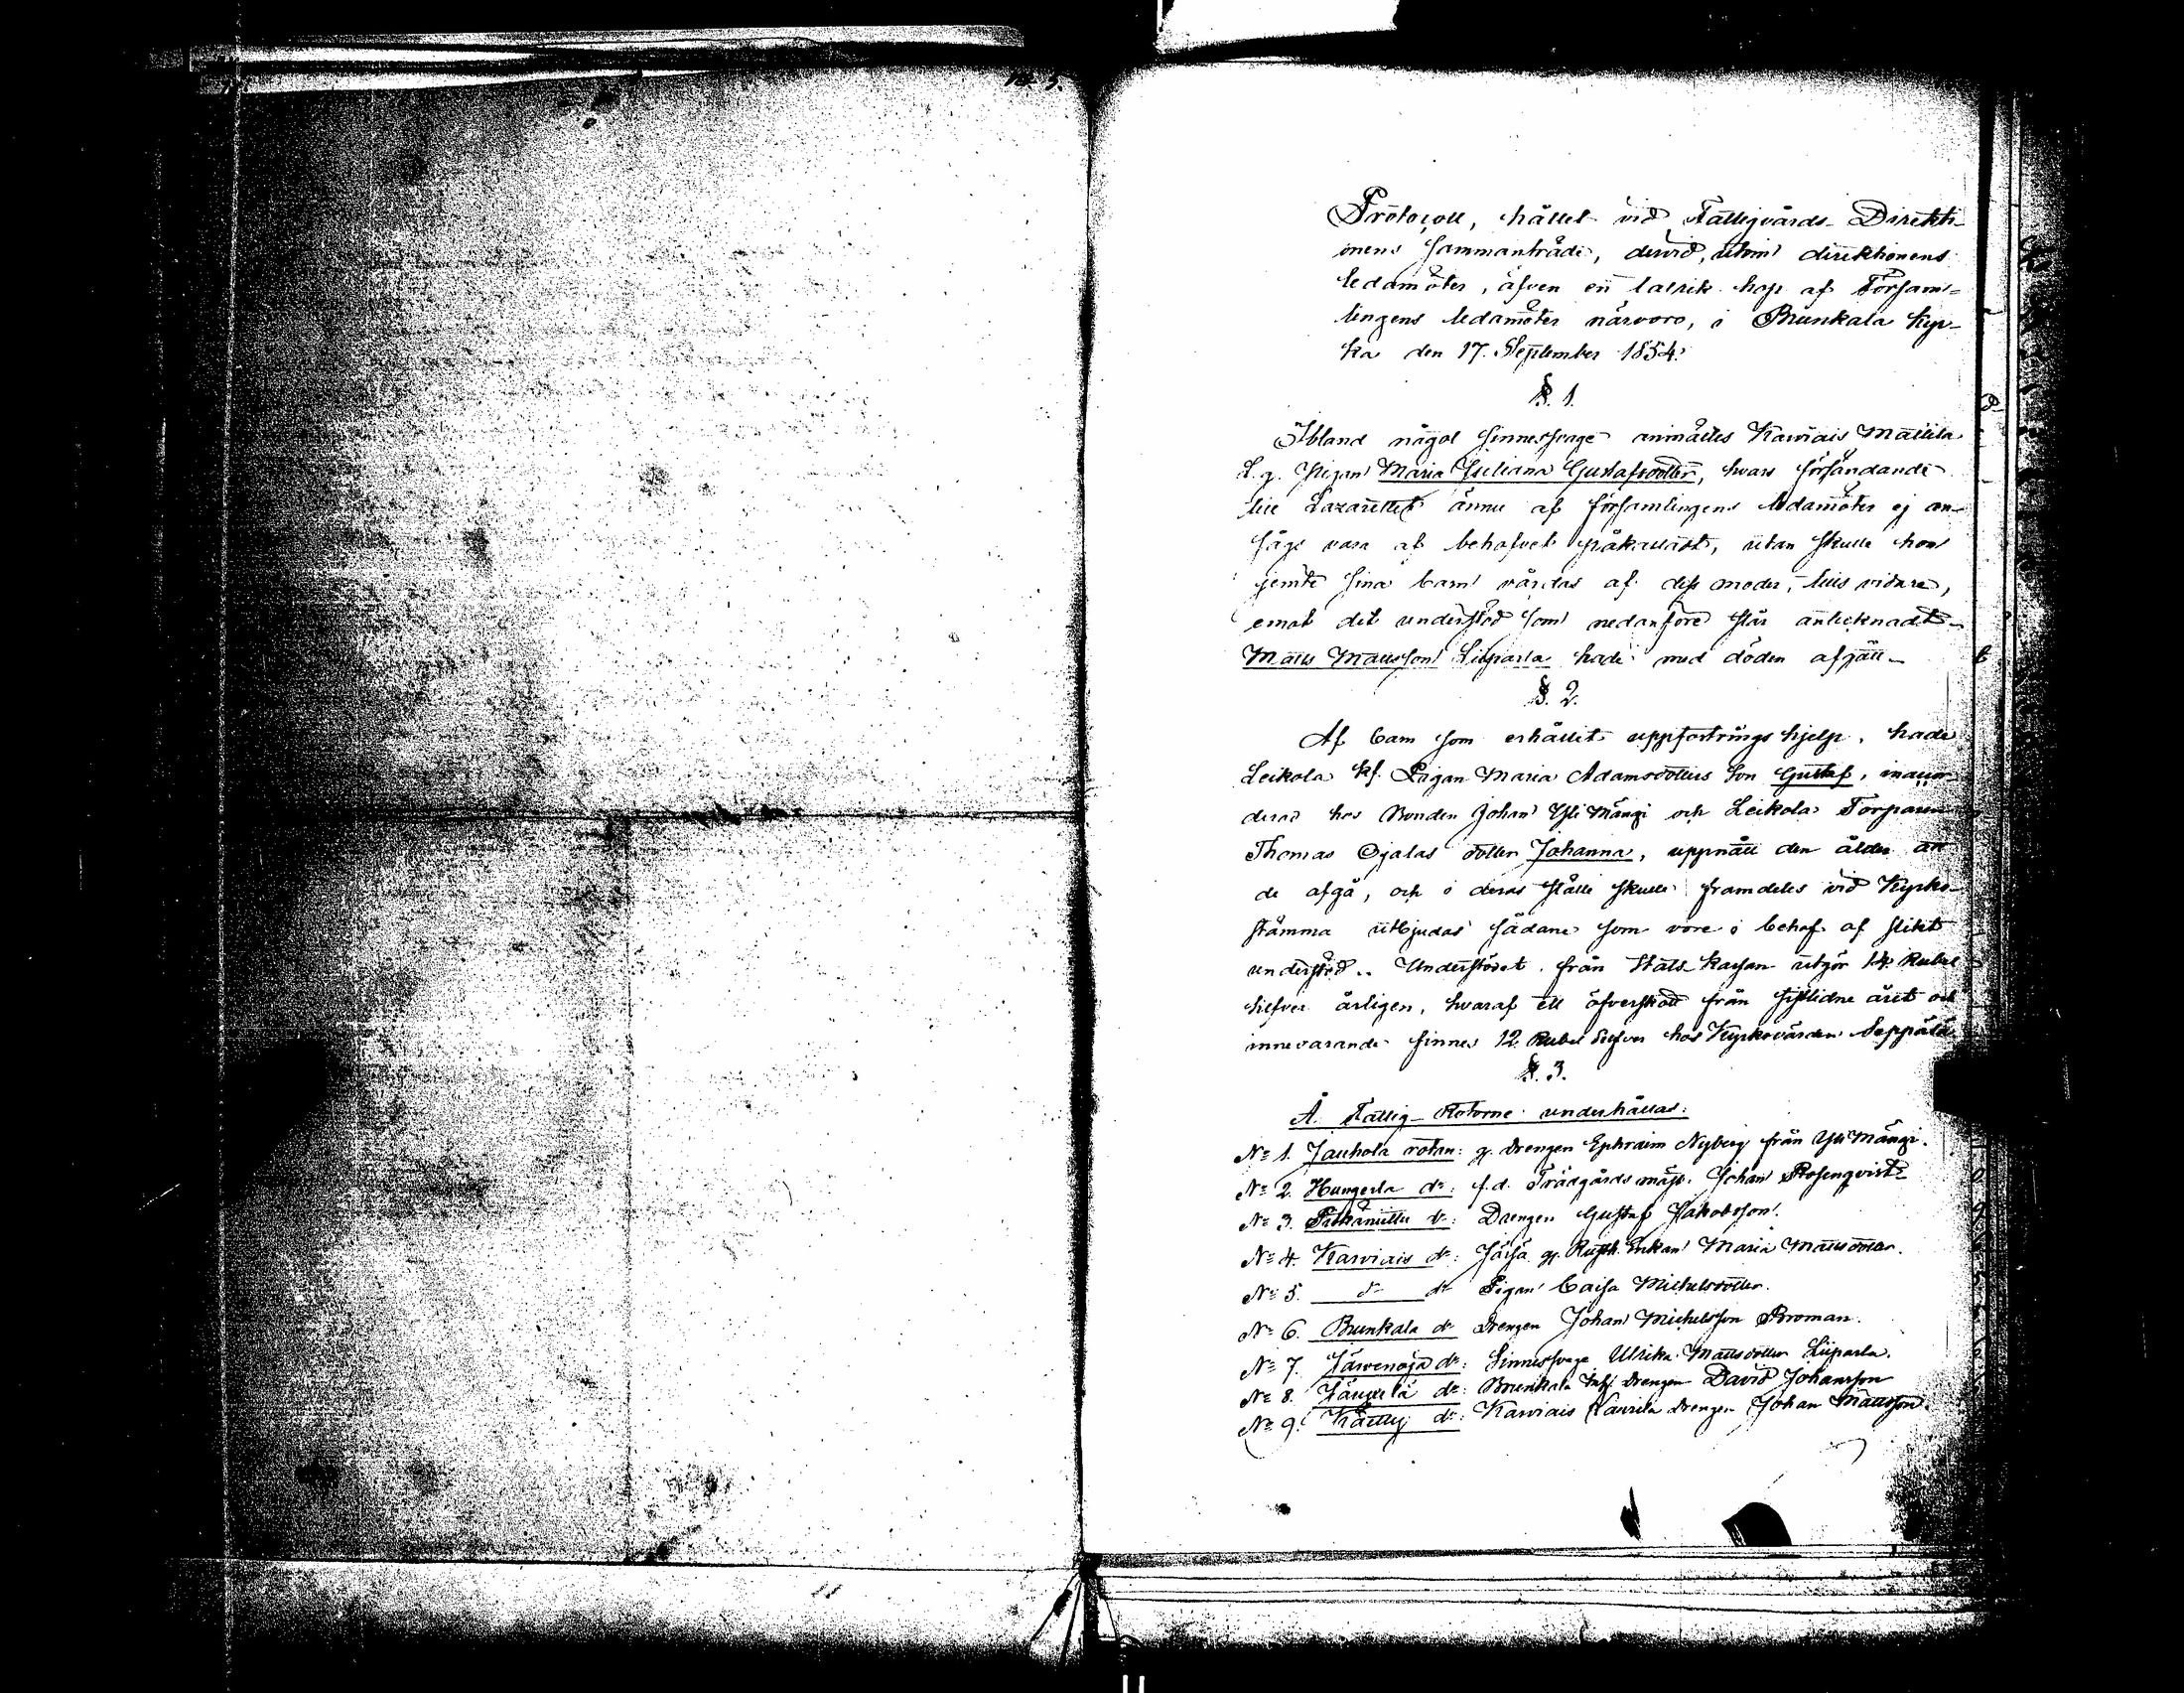 Protocoll, hållet vid Fattigvårds-Direkti-
onens sammanträde, dervid, utom direktionens
ledamöter, äfven en talrik hop af Försam-
lingens ledamöter närvoro, i Brunkala kyr-
ka den 17. September 1854.
§. 1.
Ibland något sinnessvage anmältes Karviais Mattila
S. g. Pigan Maria Juliana Gustafsdotter, hvars försändande
till Lazarettet ännu af församlingens ledamöter ej an-
sågs vara af behofvet påkalladt, utan skulle hon
jemte sina barn vårdas af dess moder, tills vidare,
emot det understöd som nedanföre står antecknadt-
Matts Mattsson Liiparla hade med döden afgått-
§. 2.
Af barn som erhållit uppfostrings hjelp, hade
Leikola Pigan Maria Adamsdotters Son Gustaf,
hos Bonden Johan Yli Mångi och Leikola Torparen
Thomas Ojalas dotter Johanna, uppnått den ålder att
de afgå, och i deras ställe skulle framdeles vid Kyrko-
stämma utbjudas sådane som vore i behof af slikt
understöd.. Understödet från Stats-kassan utgör 14 Rubel
silfver årligen, hvaraf ett öfverskott från sistlidne året och
innevarande finnes 12 Rubel Silfver hos Kyrkovärden Seppälä
§. 3.
Å Fattig-Rotorne underhållas:
No 1. Jauhola rotan: g. drengen Ephraim Nyberg från Yli Mångi.
No 2. Hungerla do: f.d. Trädgårdsmäst. Johan Rosenqvist
No 3. do: Drengen Gustaf Jakobsson.
No 4. Karviais do: g. Enkan Maria Mattsdotter.
No 5. do do Pigan Caisa Michelsdotter.
No 6. Brunkala do Drengen Johan Michelsson Broman.
No 7. Järvenoja do: Sinnessvage Ulrika Mattsdotter Liiparla.
No 8. do: Brunkala drengen David Johansson
No 9. do: Karviais Laurila drengen Johan Mattsson.